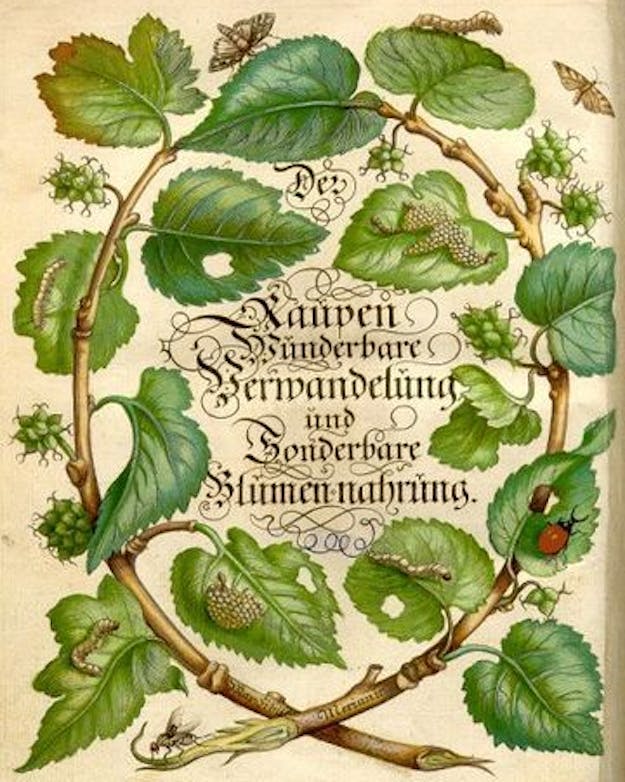 Der
Raupen
Wunderbare
Verwandelung
und
Sonderbare
Blumen-nahrung.
Merianin